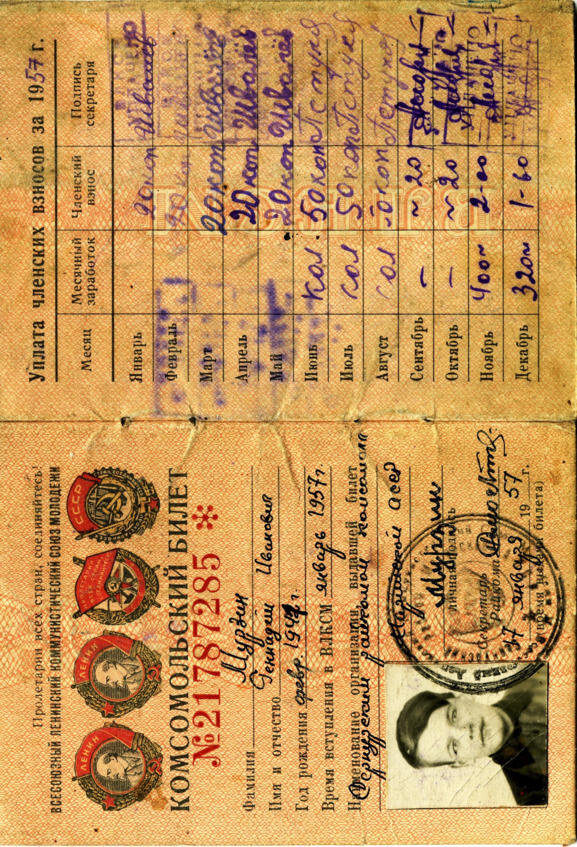 Пролетарии всех стран, соединяйтесь!
ВСЕСОЮЗНЫЙ ЛЕНИНСКИЙ КОММУНИСТИЧЕСКИЙ СОЮЗ МОЛОДЕЖИ
ЛЕНИН
ЛЕНИН
СССР
КОМСОМОЛЬСКИЙ БИЛЕТ
№21787285
Фамилия Мурзин
Имя и отчество Геннадий Иванович
Год рождения февр.
Время вступления в ВЛКСМ январь 1957 г
Наименование организации, выдавшей билет
райкомом комсомола
Марийской асср
Мурзин
Личная подпись
Секретарь
Райкома
января 1957 г.
(время выдачи билета)
Уплата членских взносов за 1957 г.
Месяц Месячный заработок Членский взнос Подпись секретаря
Январь 20 коп Швалёв
Февраль 20 коп
Март 20 коп Швалёв
Апрель 20 коп Швалёв
Май 20 коп Швалёв
Июнь кол 50 коп
Июль кол 50 коп
Август кол 50 коп
Сентябрь — ~ 20
Октябрь — ~ 20
Ноябрь 400 ~ 2-00
Декабрь 320 ~ 1-60